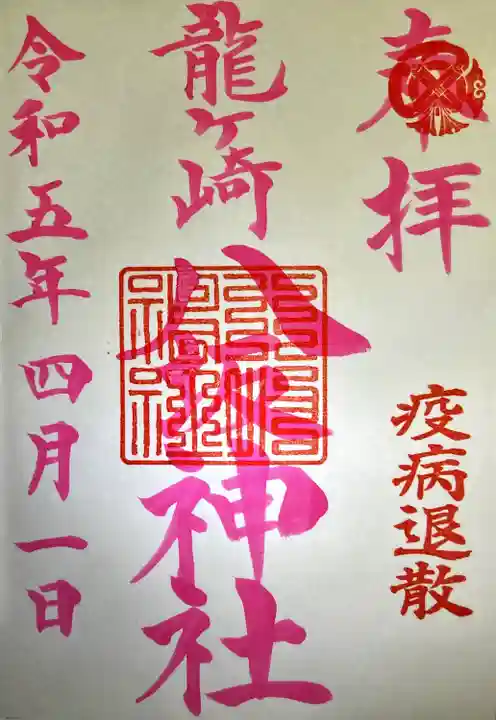 奉拝
疫病退散
龍ヶ崎
八坂神社
令和五年四月一日